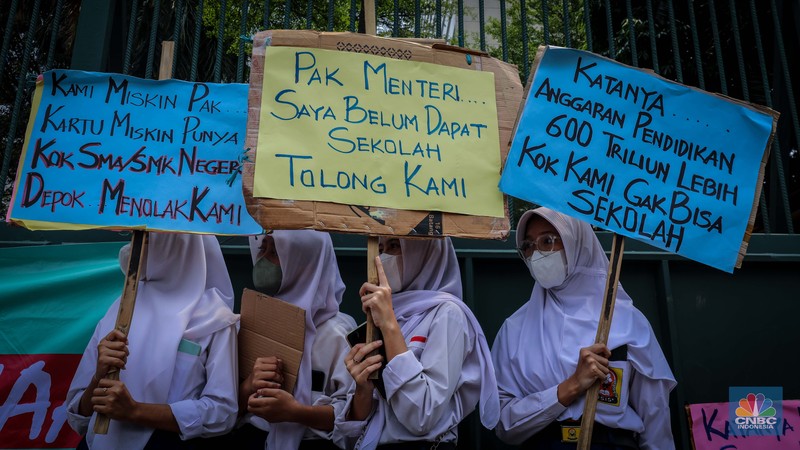 KAMI MISKIN PAK...
KARTU MISKIN PUNYA
KOK SMA/SMK NEGERI
DEPOK.. MENOLAK KAMI
PAK MENTERI....
SAYA BELUM DAPAT
SEKOLAH
TOLONG KAMI
KATANYA.......
ANGGARAN PENDIDIKAN
600 TRILIUN LEBIH
KOK KAMI GAK BISA
SEKOLAH
KATANY
CNBC
INDONESIA